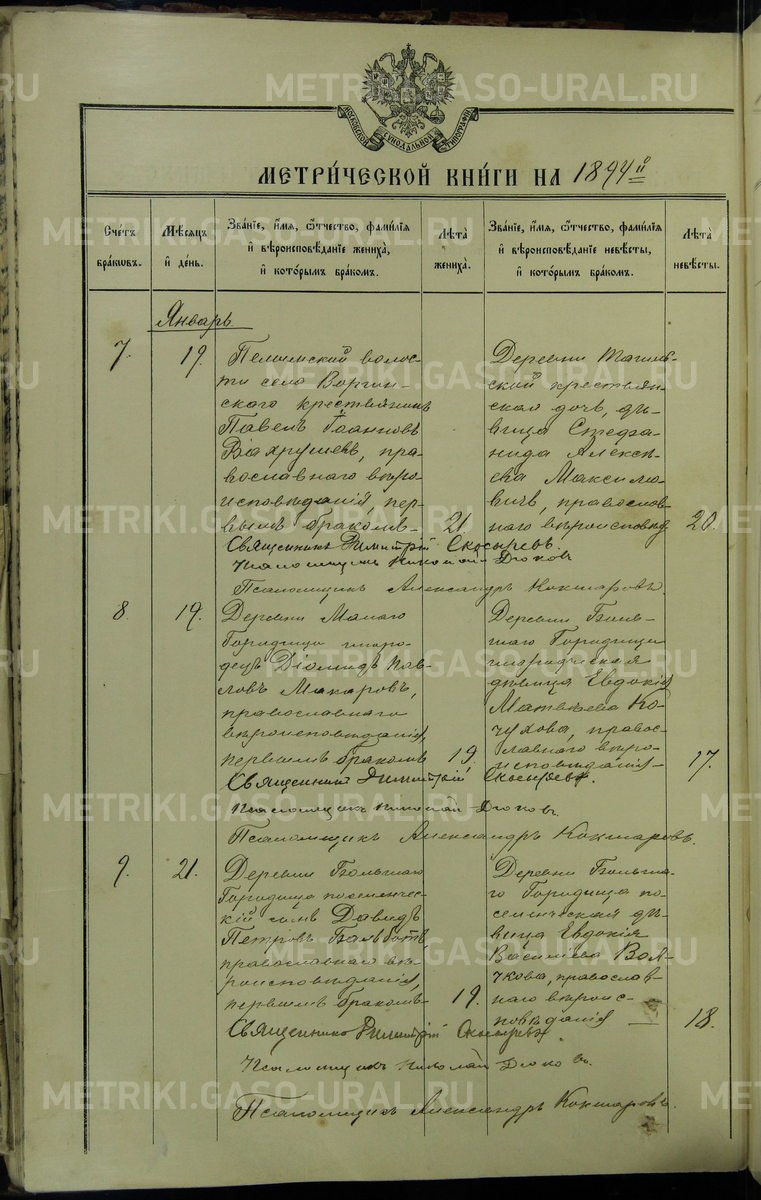 METRIKI.GASO-URAL.RU
МОСКОВСКОЙ СѴНОДАЛЬНОЙ ТИПОГРАФІИ
МЕТРИ́ЧЕСКОЙ КНИ́ГИ НА 1894й
Сче́тъ бра́ковъ.
Мѣ́сяцъ и҆ де́нь.
Зва́нїе, и҆́мя, ѻ҆́тчество, фами́лїя
и҆ вѣроисповѣ́данїе жениха̀,
и҆ кото́рымъ бра́комъ.
Лѣ́та жениха̀.
Зва́нїе, и҆́мя, ѻ҆́тчество, фами́лїя
и҆ вѣроисповѣ́данїе невѣ́сты,
и҆ кото́рымъ бра́комъ.
Лѣ́та невѣ́сты.
Январь
7.
19.
Пелымской волос-
ти села
скаго крестьянинъ
Павелъ Іоанновъ
Вахрушевъ, пра-
вославнаго вѣро-
исповѣданія, пер-
вымъ бракомъ-
21
Деревни
ской крестьян-
ская дочь, дѣ-
вица Стефа-
нида Алексѣ-
ева Максимо-
вичъ, православ-
наго вѣроисповѣд.
20.
Священникъ Димитрій Скосыревъ.
Псаломщикъ Николай
Псаломщикъ Александръ Кокшаровъ.
8.
19.
Деревни Малаго
Городища
Діомидъ Пав-
ловъ Макаровъ,
православнаго
вѣроисповѣданія,
первымъ бракомъ
19.
Деревни Боль-
шаго Городища
дѣвица Евдокія
Матвѣева Ко-
чухова, правос-
лавнаго вѣро-
исповѣданія-
17.
Священникъ Димитрій Скосыревъ.
Псаломщикъ Николай
Псаломщикъ Александръ Кокшаровъ.
9.
21.
Деревни Большаго
Городища поселенчес-
кій сынъ Давидъ
Петровъ
православнаго вѣ-
роисповѣданія,
первымъ бракомъ-
19.
Деревни Больша-
го Городища по-
селенческая дѣ-
вица Евдокія
Василіева Воя-
чкова, православ-
наго вѣроис-
повѣданія —
18.
Священникъ Димитрій Скосыревъ
Псаломщикъ Николай
Псаломщикъ Александръ Кокшаровъ.